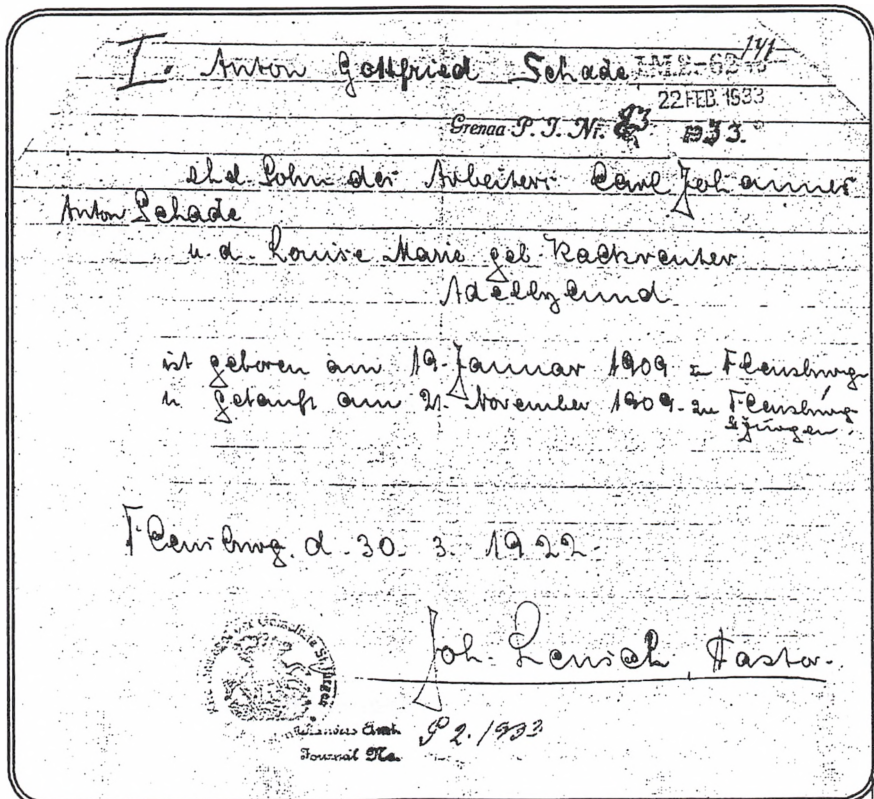 141
I. Anton Gottfried Schade
22 FEB. 1933
Grenaa P. J. Nr. 1933.
ehel. Sohn des Arbeiters Carl Johannes
Anton Schade
u. d. Louise Marie geb. Rackreuter
Adelbylund
ist geboren am 19. Januar 1909 zu Flensburg
u. getauft am 21. November 1909. zu Flensburg
St Jürgen.
Flensburg. d. 30. 3. 1922.
Joh. Pastor.
Gemeinde St. Jürgen
Amt. P 2. / 1933
Journal No.